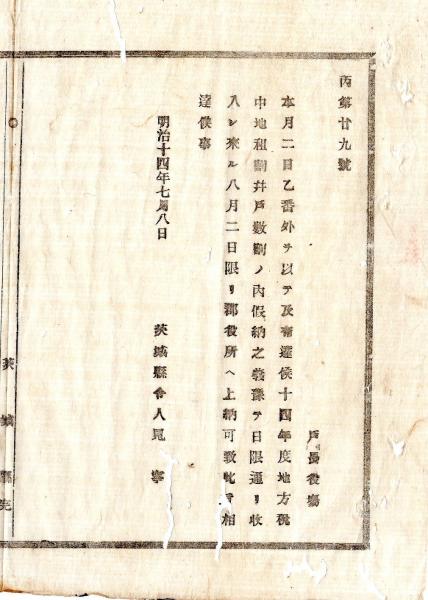 丙第廿九號
戸長役塲
本月二日乙番外ヲ以テ及布達候十四年度地方稅
中地租割幷戸數割ノ內假納之義豫テ日限通リ收
入シ來ル八月二日限リ郡役所ヘ上納可致此旨相
達候事
明治十四年七月八日
茨城縣令人見寧
茨城縣